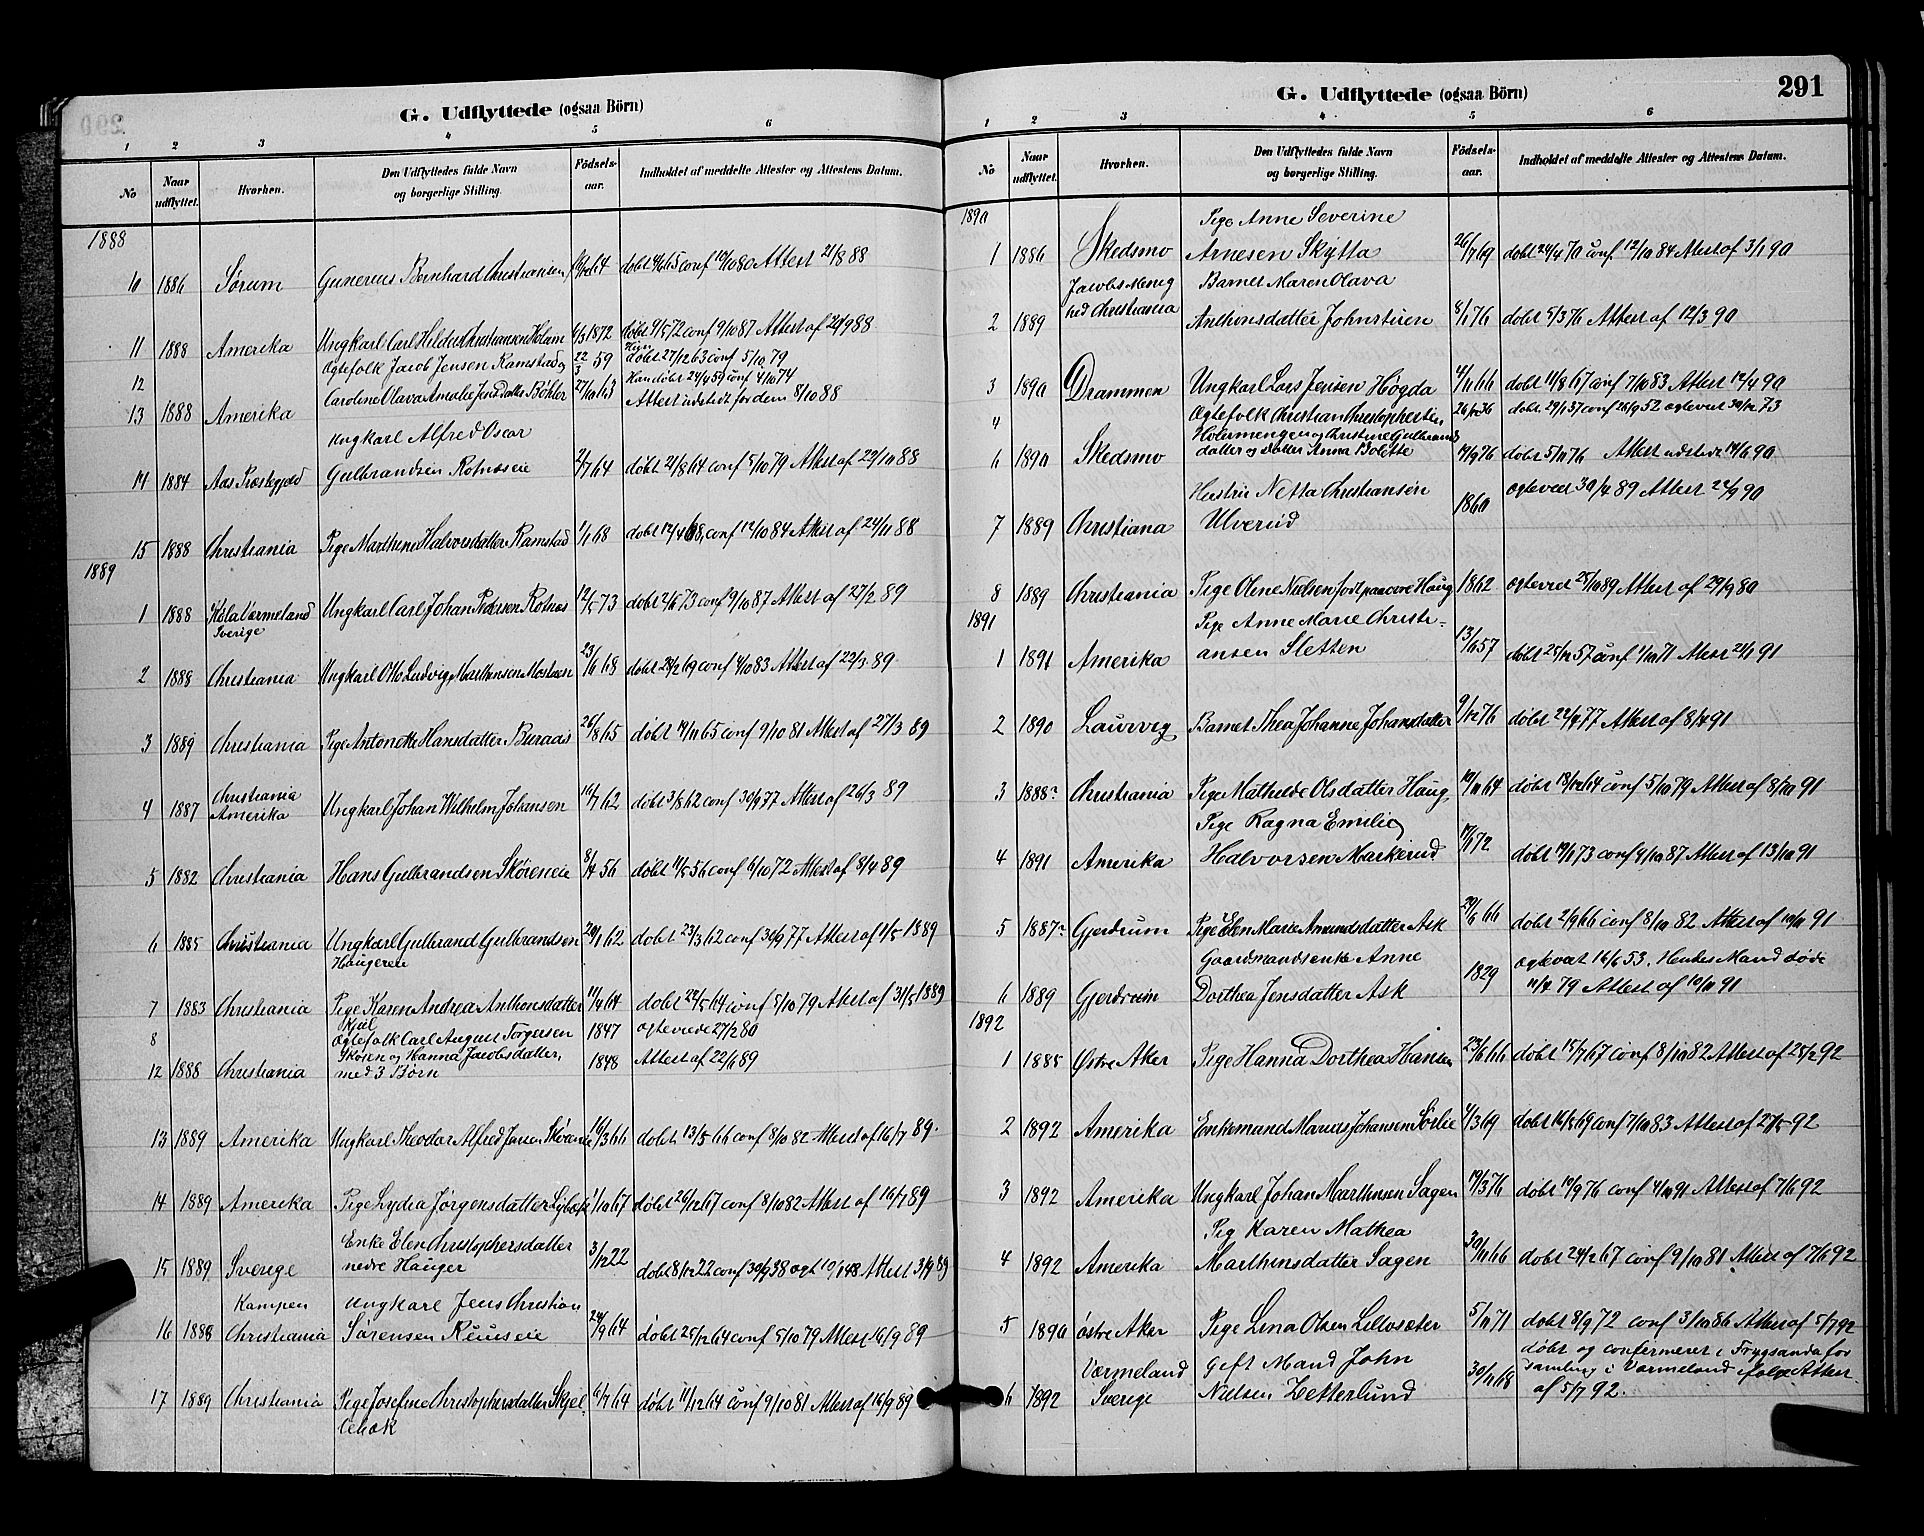 G. Udflyttede (ogsaa Börn)
1 2 3 4 5 6
No
Naar udflyttet.
Hvorhen.
Den Udflyttedes fulde Navn og borgerlige Stilling.
Födsels-aar.
Indholdet af meddelte Attester og Attestens Datum.
1888
10 1886 Sørum Gunerius Bernhard Christiansen døbt conf 10/1080 Attest 21/8 88
11 1888 Amerika Ungkarl Carl Hilder Christiansen Holam 6/3 1872 døbt 9/5 72 conf 9/10 87 Attest af 24/9 88
12 Ogtefolk Jacob Jensen Ramstad og 22/3 59 Hun døbt 27/12 63 conf 5/10 79
Han døbt 24/4 59 conf 4/10 74
13 1888 Amerika Caroline Olava Amalie Jensdatter Böhler 27/10 63 Attest udstedt for dem 8/10 88
Ungkarl Alfred Oscar
14 1884 Aas Præstegjeld Gulbrandsen Rotnæseie 2/7 64 døbt 21/8 64 conf 5/10 79 Attest af 29/10 88
15 1888 Christiania Pige Marthine Halvorsdatter Ramstad 1/1 68 døbt 12/4 68, conf 12/10 84 Attest af 24/11 88
1889
1 1888 Kola Värmeland Ungkarl Carl Johan Pedersen Rotnæs 12/5 73 døbt 2/6 73 conf 9/10 87 Attest af 27/2 89
Sverige
2 1888 Christiania Ungkarl Otto Ludvig Marthinsen Mostuen 23/11 68 døbt 28/2 69 conf 4/10 83 Attest af 22/3 89
3 1889 Christiania Pige Antonette Hansdatter Buraas 26/8 65 døbt 19/11 65 conf 9/10 81 Attest af 27/3 89
Christiania
4 1887 Amerika Ungkarl Johan Wilhelm Johansen 10/7 62 døbt 3/8 62 conf 30/9 77 Attest af 26/3 89
5 1882 Christiania Hans Gulbrandsen Skøieneie 8/4 56 døbt 11/5 56 conf 6/10 72 Attest af 8/4 89
6 1885 Christiania Ungkarl Gulbrand Gulbrandsen 20/1 62 døbt 23/3 62 conf 30/9 77 Attest af 1/5 1889
Haugereie
7 1883 Christiania Pige Karen Andrea Anthonsdatter 11/4 64 døbt 22/5 64 conf 5/10 79 Attest af 31/5 1889
Kjøl
8 Ogtefolk Carl August Torgersen 1847 ogteviede 27/2 80
Skøien og Hanna Jacobsdatter, 1848 Attest af 22/6 89
12 1888 Christiania med 3 Børn
13 1889 Amerika Ungkarl Theodor Alfred Jensen 16/3 66 døbt 13/5 66 conf 8/10 82 Attest af 16/7 89.
14 1889 Amerika Pige Lydia Jørgensdatter 1/10 67 døbt 26/12 67 conf 8/10 82 Attest af 16/7 89
Enke Elen Christophersdatter
15 1889 Sverige nedre Hauger 3/12 22 døbt 8/12 22 conf 30/9 38 ogt 10/1 48 Attest 3/9 89
Kampen Ungkarl Jens Christian
16 1888 Christiania Sørensen Ruuseie 24/9 64 døbt 25/12 64 conf 5/10 79 Attest 16/9 89
17 1889 Christiania Pige Josefine Christophersdatter Skjel- 6/7 64 døbt 11/12 64 conf 9/10 81 Attest af 16/9 89
lebæk
G. Udflyttede (ogsaa Börn)
291
1 2 3 4 5 6
No
Naar udflyttet.
Hvorhen.
Den Udflyttedes fulde Navn og borgerlige Stilling.
Födsels-aar.
Indholdet af meddelte Attester og Attestens Datum.
1890
Pige Anne Severine
1 1886 Skedsmo Arnesen Skytta 26/7 69 døbt 24/4 70 conf 12/10 84 Attest af 3/1 90
Jacobs Menig Barnet Maren Olava
hed Christiania
2 1889 Anthonsdatter Johnstuen 8/1 76 døbt 5/3 76 Attest af 12/3 90
3 1890 Drammen Ungkarl Lars Jensen Høgda 4/11 66 døbt 11/8 67 conf 7/10 83 Attest 12/4 90
4 Ogtefolk Christian Christophersen 26/12 36 døbt 29/1 37 conf 26/9 52 ogteviet 30/12 73
Holermengen og Christine Gulbrands
6 1890 Skedsmo datter og datter Anna Bolette 14/9 76 døbt 5/11 76 Attest udstedt 14/6 90
Hustru Netta Christiansen 1860 ogteviet 30/4 89 Attest 22/9 90
7 1889 Christiana Ulverud
8 1889 Christiania Pige Oline Nielsen født paa øvre Haug 1862 ogteviet 25/10 89 Attest af 29/9 80
1891
Pige Anne Marie Christi-
1 1891 Amerika ansen Sletten 13/11 57 døbt 25/12 57 conf 1/10 71 Attest 24/1 91
2 1890 Laurvig Barnet Thea Johanne Johansdatter 9/12 76 døbt 22/4 77 Attest af 8/4 91
3 1888? Christiania Pige Mathilde Olsdatter Haug 10/11 64 døbt 18/12 64 conf 5/10 79 Attest af 8/10 91
Pige Ragna Emilie
4 1891 Amerika Halvorsen Markerud 17/1 72 døbt 19/1 73 conf 9/10 87 Attest af 13/10 91
5 1887? Gjerdrum Pige Elen Marie Amundsdatter Ask 29/6 66 døbt 2/9 66 conf 8/10 82 Attest af 10/11 91
Gaardmandsenke Anne 1829 ogteviet 16/6 53. Hendes Mand døde
6 1889 Gjerdrum Dorthea Jensdatter Ask 11/4 79 Attest af 10/11 91
1892
1 1885 Østre Aker Pige Hanna Dorthea Hansen 23/6 66 døbt 15/7 67 conf 8/10 82 Attest af 25/2 92
2 1892 Amerika Enkemand Marius Johansen Sørlie 4/3 69 døbt 16/5 69 conf 7/10 83 Attest af 27/5 92
3 1892 Amerika Ungkarl Johan Marthinsen Sagen 19/3 76 døbt 10/9 76 conf 4/10 91 Attest af 7/6 92
Pig Karen Mathea
4 1892 Amerika Marthinsdatter Sagen 30/11 66 døbt 24/2 67 conf 9/10 81 Attest af 7/6 92
5 1890 østre Aker Pige Lina Olsen Lillosæter 5/11 71 døbt 8/9 72 conf 3/10 86 Attest af 5/7 92
Værmeland Gift Mand John døbt og confermeret i Frygsanda for
6 1892 Sverige Nielsen Zetterlund 30/11 68 samling i Varmeland ifølge Attest
af 5/7 92.